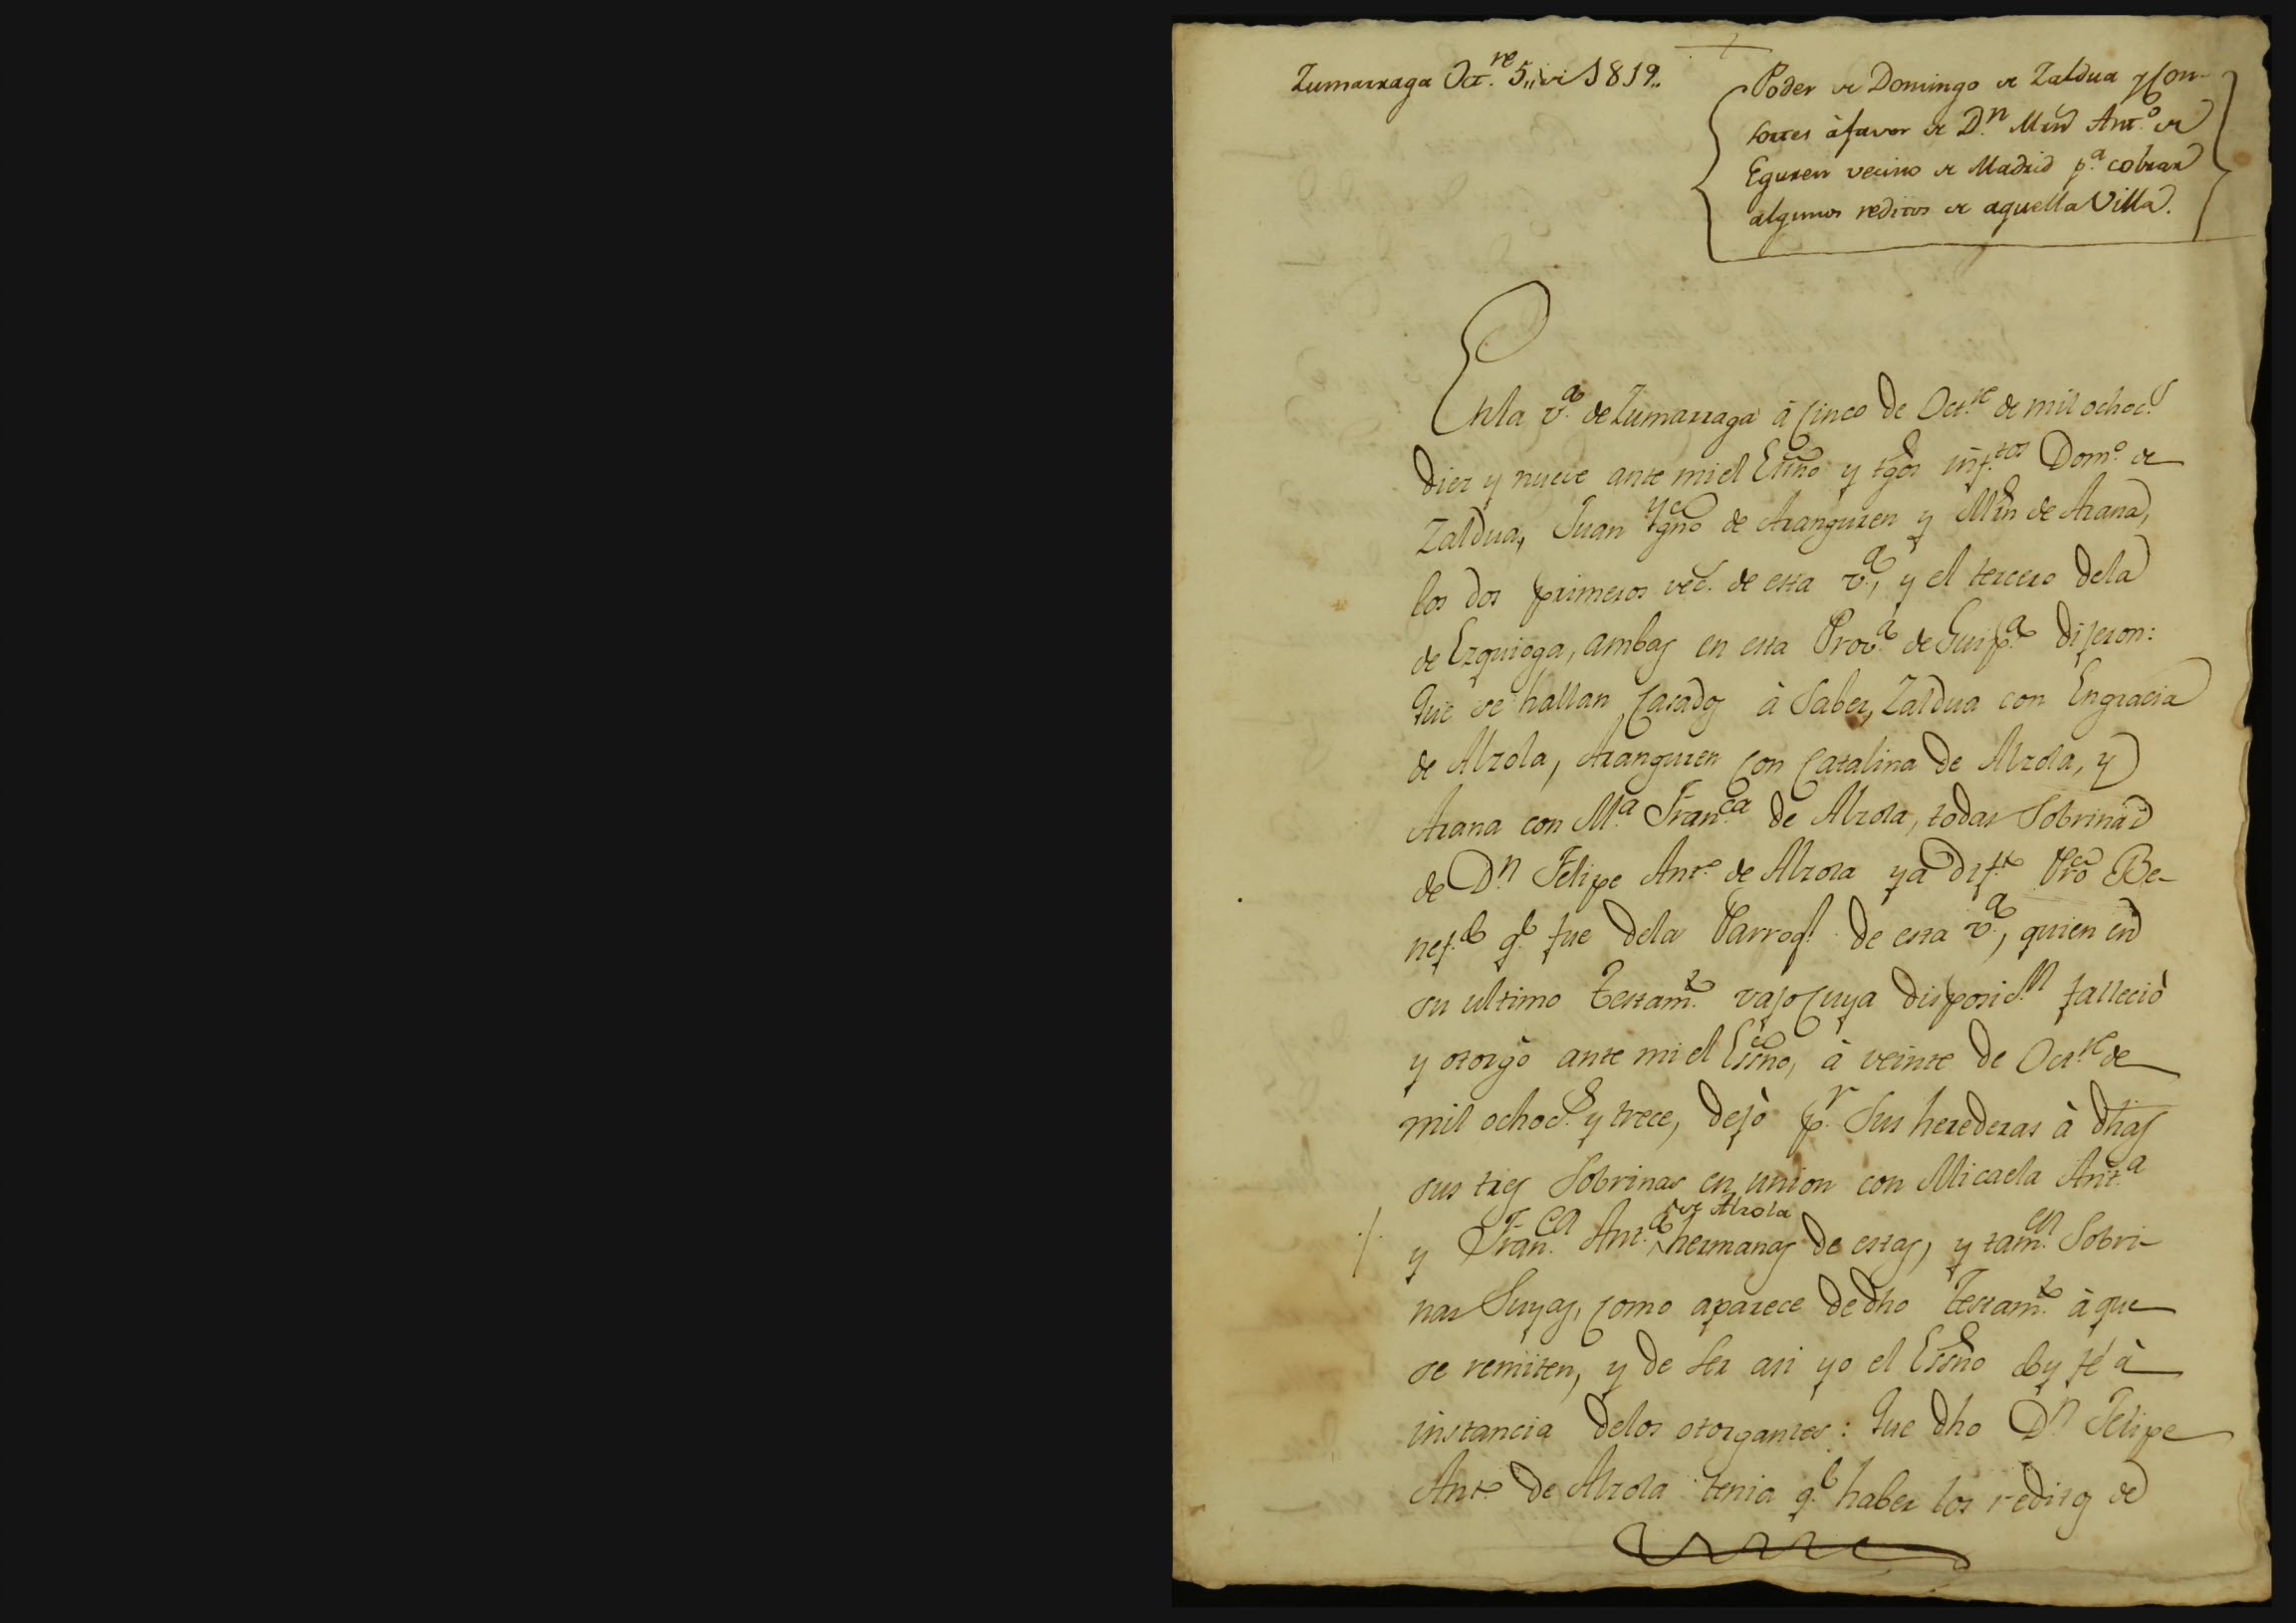 Zumarraga Oct.re 5,, de 1819,,
Poder de Domingo de Zaldua y Con-
sortes à favor de D.n Mrn Ant.o de
Eguren vecino de Madrid p.a cobrar
algunos reditos de aquella Villa.
En la v.a de Zumarraga à cinco de Oct.re de mil ochoc.s
diez y nueve ante mi el Essno y tgos inf.tos Dom.o de
Zaldua, Juan Ygno de Aranguren y Mrn de Arana,
los dos primeros vec.s de esta v.a, y el tercero dela
de Ezquioga, ambas en esta Prov.a de Guip.a dijeron:
Que se hallan casados à saber, Zaldua con Engracia
de Alzola, Aranguren con Catalina de Alzola, y
Arana con M.a Fran.ca de Alzola, todas sobrinas
de D.n Felipe Ant.o de Alzola ya dif.to Pro Be-
nef.do q.e fue dela Parroq.l de esta v.a, quien en
su ultimo Testam.to vajo cuya disposic.n falleciò
y otorgò ante mi el Essno, à veinte de Oct.re de
mil ochoc.s y trece, dejò p.r sus herederas à dhas
sus tres sobrinas en union con Micaela Ant.a
y Fran.ca Ant.a de Alzola hermanas de estas, y tam.en sobri-
nas suyas, como aparece de dho Testam.to à que
se remiten, y de ser asi yo el Essno doy fé à
instancia delos otorgantes: Que dho D.n Felipe
Ant.o de Alzola tenia q.e haber los reditos de